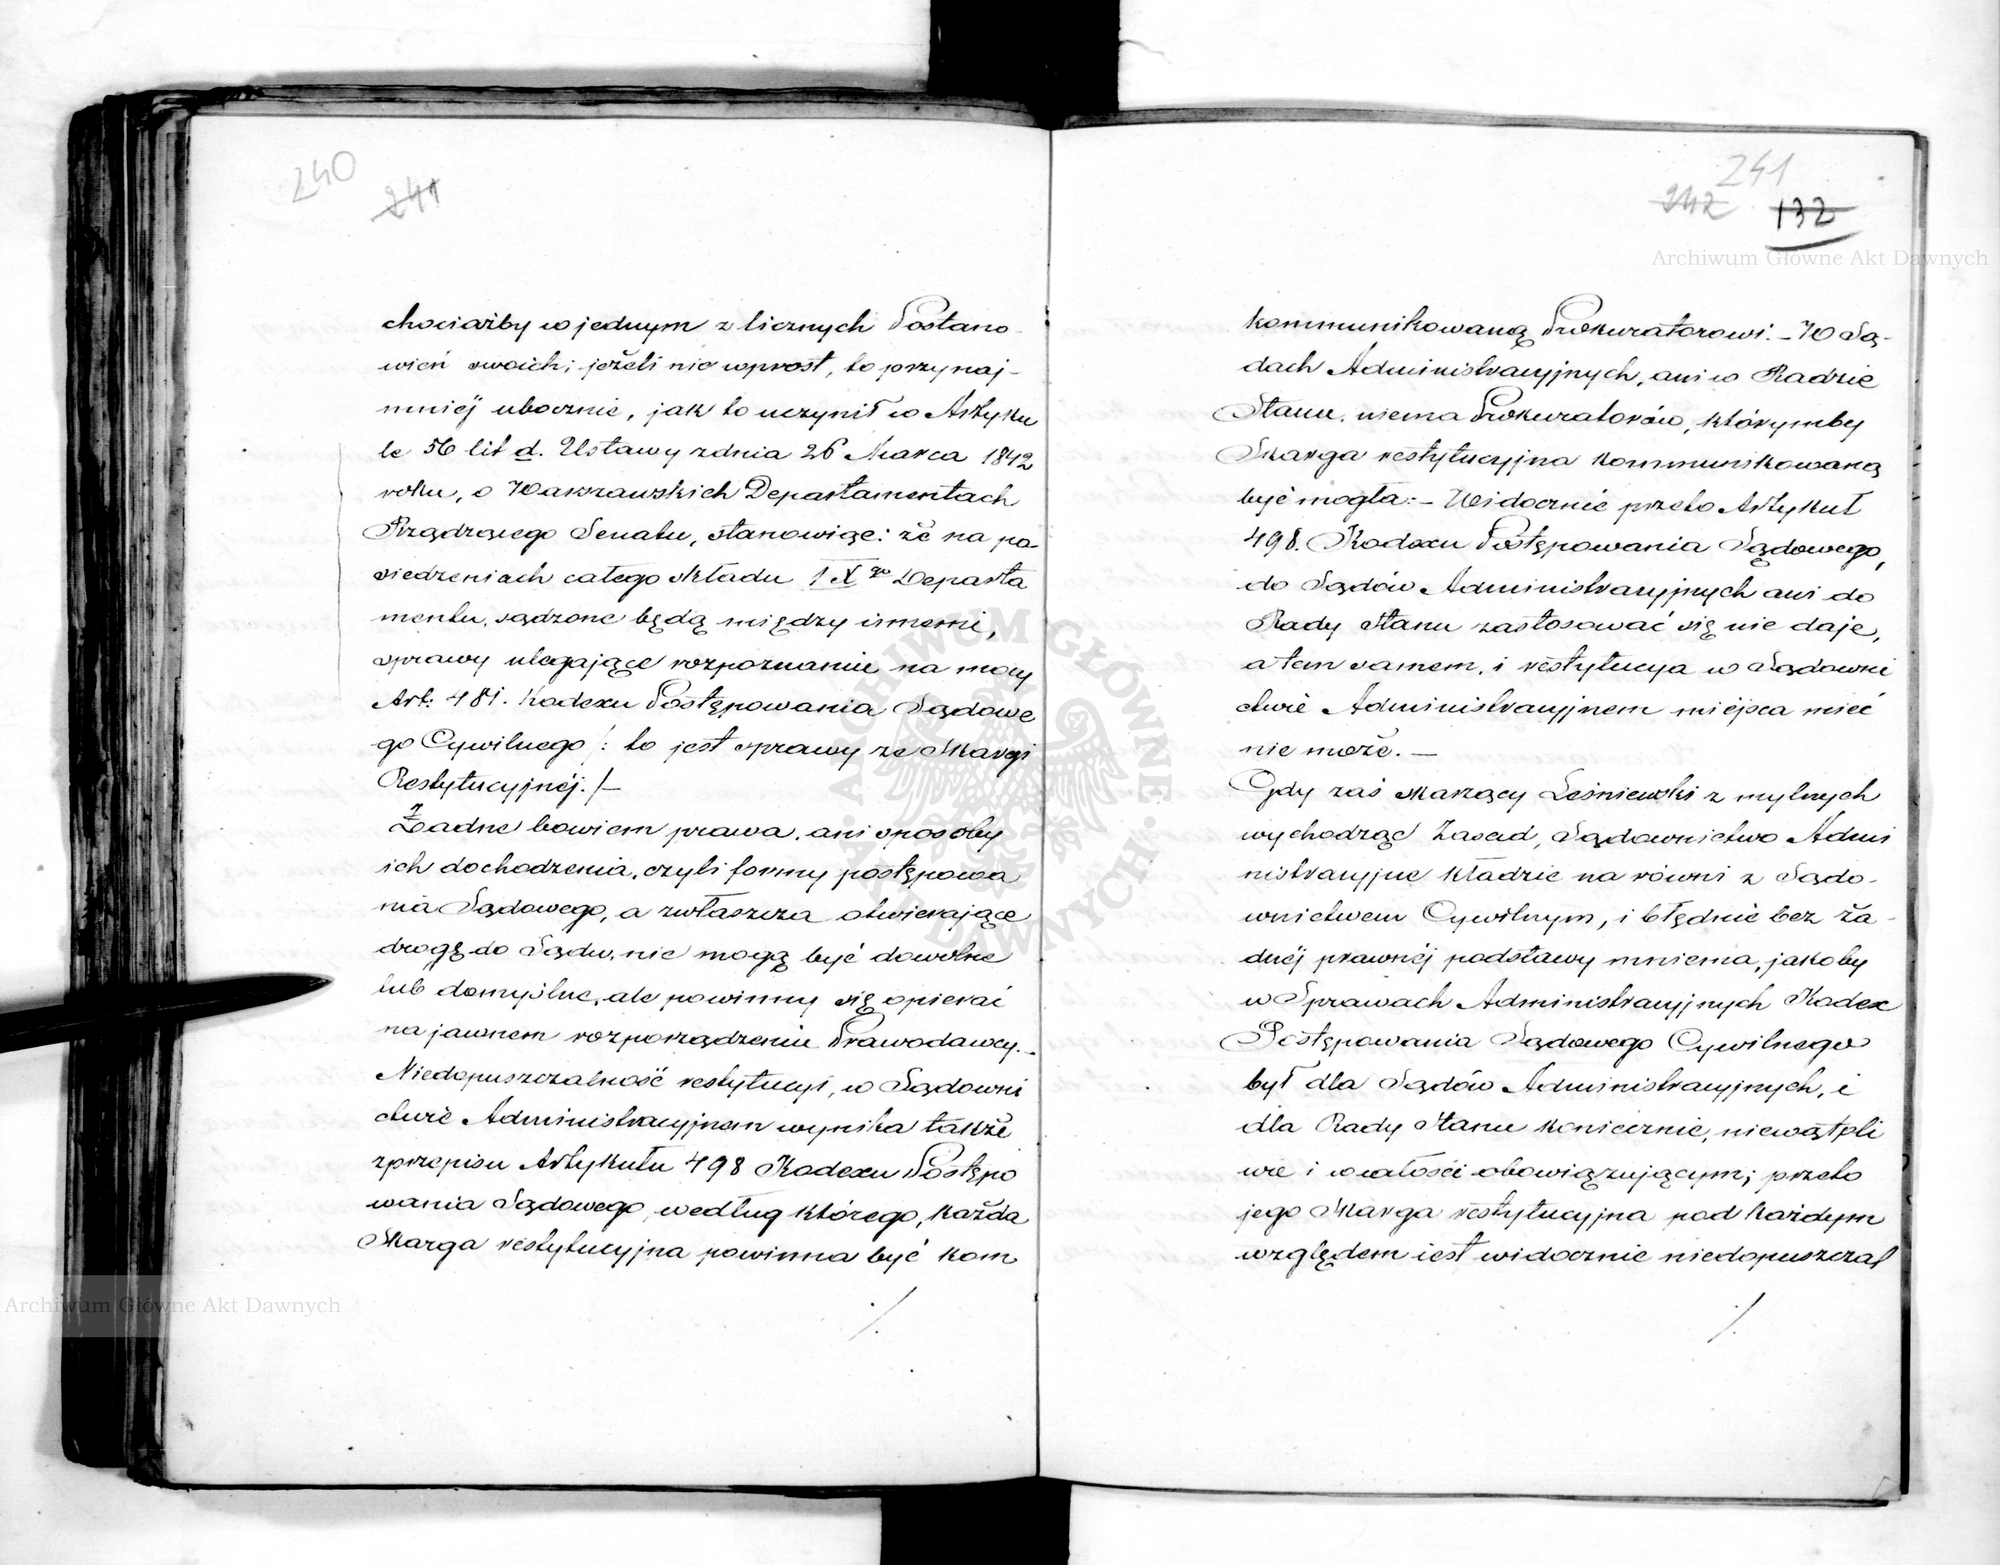 240
241
chociażby w jednym z licznych Postano-
wień swoich; jeżeli nie wprost, to przynaj-
mniéj ubocznie, jak to uczynił w Artyku
le 56 lit d. Ustawy z dnia 26 Marca 1842
roku, o Warszawskich Departamentach
Rządzącego Senatu, stanowiąc: że na po-
siedzeniach całego składu IX go Departa
mentu, sądzone będą między innemi,
sprawy ulegające rozpoznaniu na mocy
Art: 481. Kodexu Postępowania Sądowe
go Cywilnego /: to jest sprawy ze Skargi
Restytucyjnéj :/—
Żadne bowiem prawa, ani sposoby
ich dochodzenia, czyli formy postępowa
nia Sądowego, a zwłaszcza otwierające
drogę do Sądu, nie mogą być dowolne
lub domyślne, ale powinny się opierać
na jawnem rozporządzeniu Prawodawcy.—
Niedopuszczalność restytucyi, w Sądowni
ctwie Administracyjnem wynika także
z przepisu Artykułu 498 Kodexu Postępo
wania Sądowego, według którego, każda
Skarga restytucyjna powinna być kom
/.
241
242 132
kommunikowaną Prokuratorowi.— W Są-
dach Administracyjnych, ani w Radzie
Stanu, niema Prokuratorów, którymby
Skarga restytucyjna kommunikowaną
być mogła:— Widocznie przeto Artykuł
498. Kodexu Postępowania Sądowego,
do Sądów Administracyjnych ani do
Rady Stanu zastosować się nie daje,
a tem samem, i restytucya w Sądowni
ctwie Administracyjnem miejsca mieć
nie może.—
Gdy zaś skarżący Leśniewski z mylnych
wychodząc Zasad, Sądownictwo Admi
nistracyjne kładzie na równi z Sądo-
wnictwem Cywilnym, i błędnie bez ża-
dnéj prawnéj podstawy mniema, jakoby
w Sprawach Administracyjnych Kodex
Postępowania Sądowego Cywilnego
był dla Sądów Administracyjnych, i
dla Rady Stanu koniecznie, niewątpli
wie i w całości obowiązującym; przeto
jego Skarga restytucyjna pod każdym
względem iest widocznie niedopuszczal
/.
Archiwum Główne Akt Dawnych
Archiwum Główne Akt Dawnych
ARCHIWUM GŁÓWNE AKT DAWNYCH